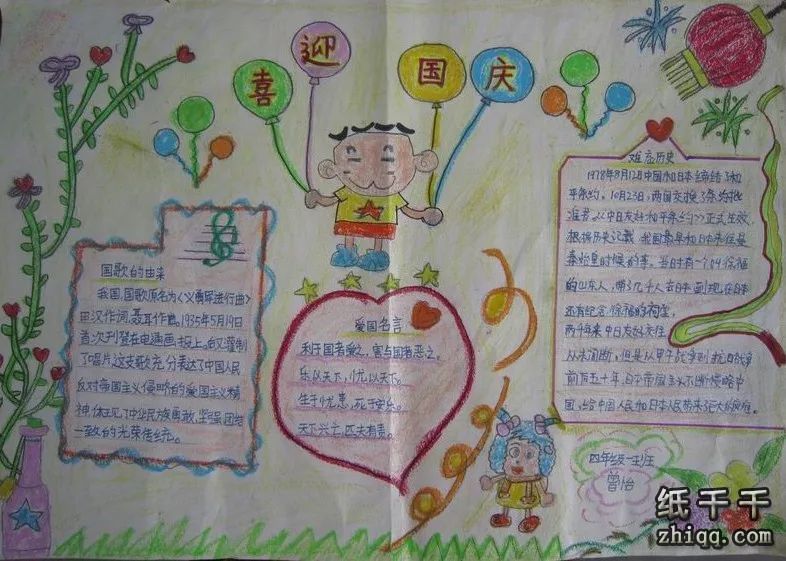 喜迎国庆
国歌的由来
我国,国歌原名为《义勇军进行曲》
田汉作词,聂耳作曲。1935年5月19日
首次刊登在电通画报上。
了唱片,这支歌充分表达了中国人民
反对帝国主义侵略的爱国主义精
神,体现了中华民族勇敢,坚强,团结
一致的光荣传统。
爱国名言
利于国者爱之,害与国者恶之。
乐以天下,忧以天下。
生于忧患,死于安乐。
天下兴亡,匹夫有责。
难忘历史
1978年8月12日中国和日本缔结了和
平条约。10月23日,两国交换了条约批
准书。《中日友好和平条约》正式生效,
根据历史记载,我国最早和日本来往是
秦始皇时候的事。当日有一个叫徐福
的山东人,带了几千人去日本,到现在日本
还有纪念徐福的祠堂,
两千年来中日友好来往
从未间断,但是从甲午战争到抗日战争
前后五十年,日本帝国主义不断侵略中
国,给中国人民和日本人民带来很大的灾难。
四年级一班
曾怡
纸千千
zhiqq.com